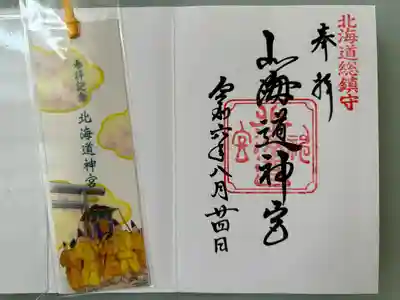 北海道総鎮守
奉拝
北海道神宮
令和六年八月廿四日
参拝記念
北海道神宮